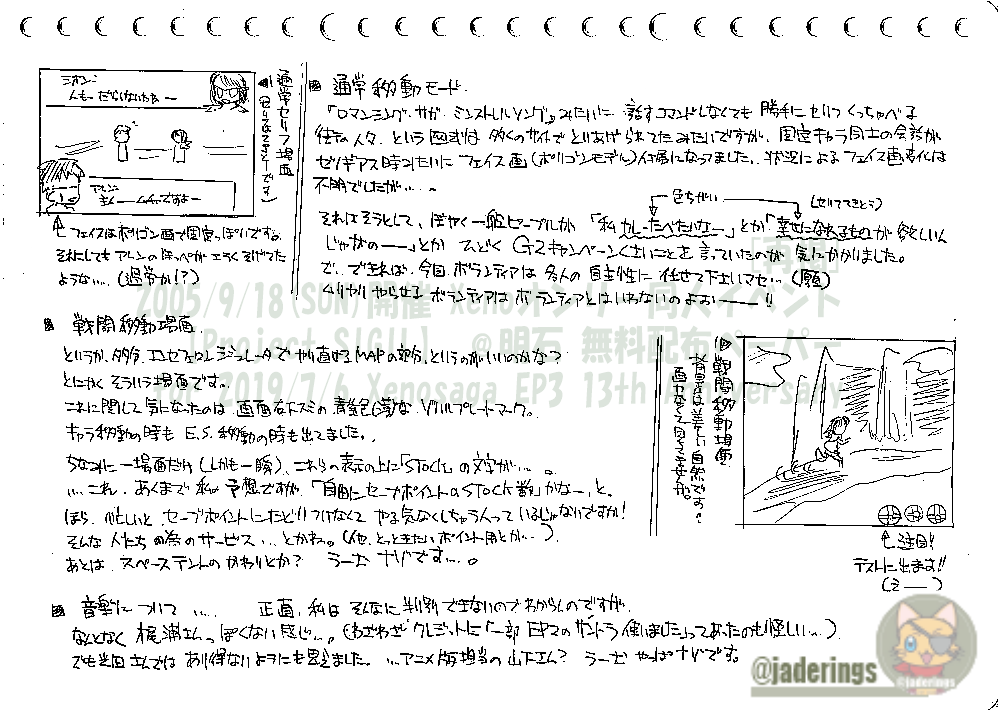 シオン:
んもーだらしないわねー
アレン:
すんませーんですよー
通常セリフ場面
フェイスはポリゴン画で固定っぽいですよ。
それにしてもアレンのほっぺがエラくそげてた
ような…。(過労か!?)
通常移動モード.
「ロマンシング・サガ・ミンストレルソング」みたいに 話すコマンドしなくても 勝手にセリフくっちゃべる
往来の人々、という図式は 多くのサイトでとりあげられてたみたいですが、固定キャラ同士の会話が
ゼノギアス時みたいに フェイス画(ポリゴンモデル)付属になってました。状況によるフェイス画変化は
不明でしたが…。
色ちがい
(セリフてきとう)
それはそうとして、ぼやく一般ピープルが「私 カレーたべたいなー」とか「幸せになれるものが欲しいん
じゃがのーー」とか ひどく G2キャンペーンくさいことを言っていたのが 気にかかりました。
で、できれば、今回 ボランティアは 各人の自主性に 任せて下さいませ…(願)
ムリヤリやらせる ボランティアは ボランティアとはいわないのよおー!!
「再掲」
2005/9/18(SUN)開催 Xenoオンリー同人イベント
【Project SIGH】 @明石 無料配布ペーパー
2019/7/6 Xenosaga EP3 13th Anniversary
戦闘移動場面.
というか、多分、エンセフェロンシミュレータで やり直せるMAPの部分、というのがいいのかな?
とにかく そういう場面です。
これに関して気になったのは 画面右下スミの 黄色(薄)な
キャラ移動の時も E.S.移動の時も出てました。
ちなみに一場面だけ(しかも一瞬)、これらの表示の上に「STOCK」の文字が…。
…これ、あくまで私の予想ですが、「自由にセーブポイントのSTOCK数」かなー、と。
ほら、忙しいと セーブポイントにたどりつけなくて やる気なくしちゃう人っているじゃないですか!
そんな人たちの為のサービス…とかね。(他、とっておきたいポイント用とか…)
あとは、スペーステントのかわりとか? うーむ ナゾです…。
戦闘移動場面.
背景は美しい自然です。
画力なくて困って下さい。
注目!
テストに出ます!!
音楽について…. 正直、私は そんなに判別できないのでわからんのですが、
なんとなく 梶浦さんっぽくない感じ…。(わざわざ クレジットに「一部 EP2のサントラ使いました」ってあったのも怪しい…)
でも光田さんでは あり得ないようにも思えました。…アニメ版担当の山下さん? うーむ やっぱナゾです。
@jaderings
@jaderings